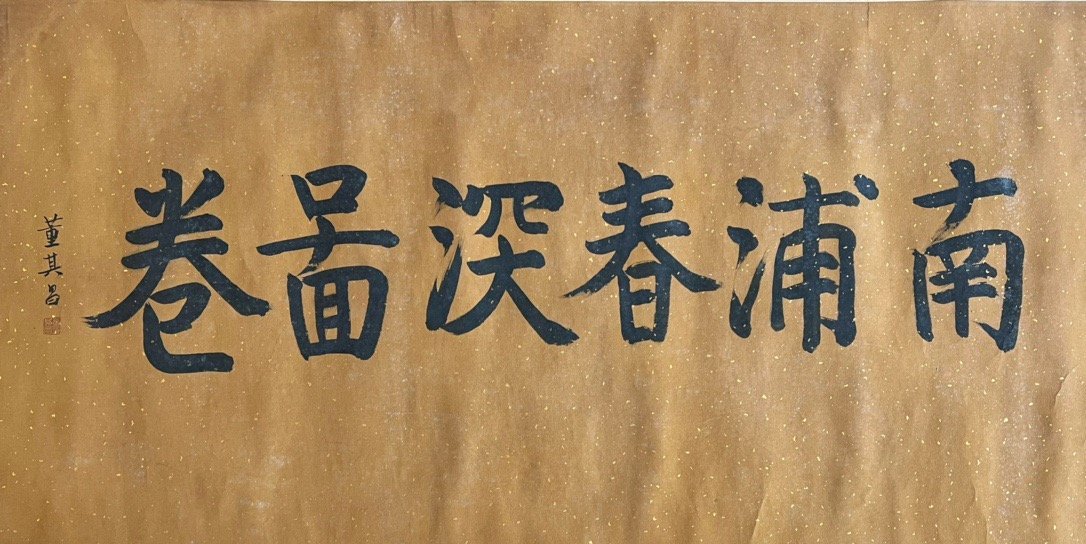 南浦春深啚卷
董其昌